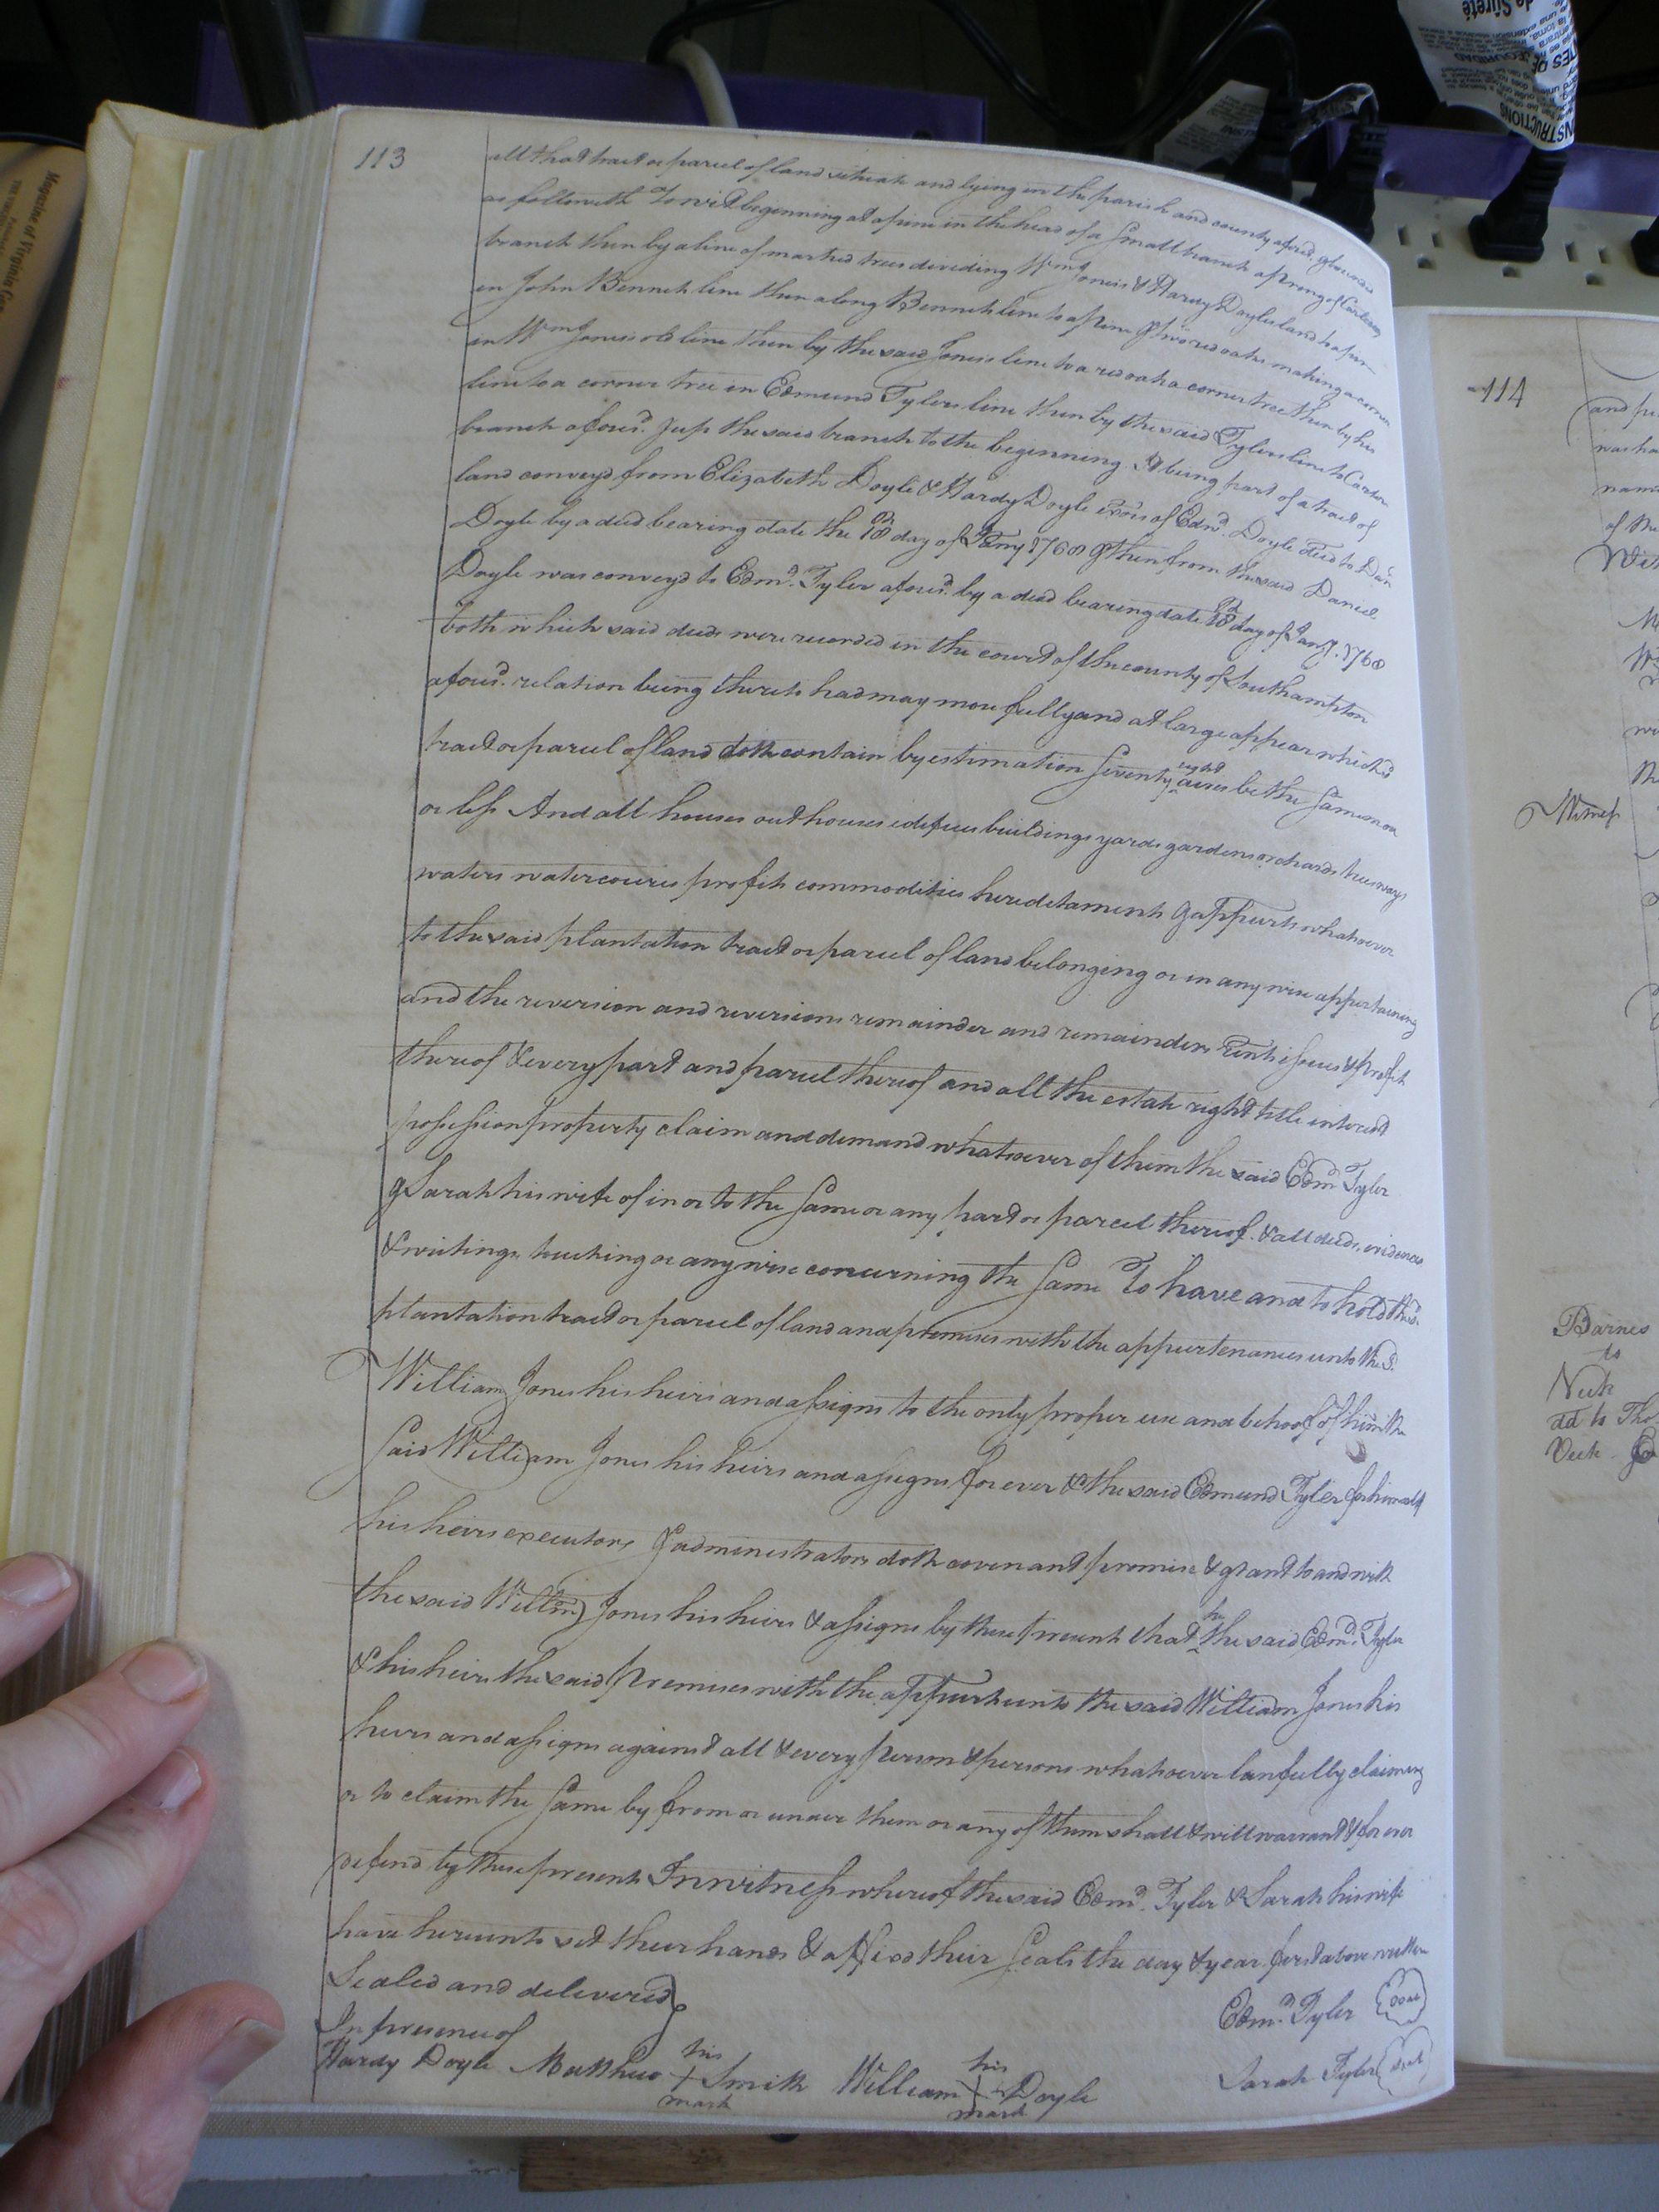 113
all that tract or parcel of land situate and lying in the parish and county afores.d & bounded
as followeth To wit beginning at a pine in the head of a small branch a prong of
branch then by a line of marked trees dividing Wm Joneis & Hardy Doyles land to a pine
in John Bennets line then along Bennets line to a pine & two red oaks making a corner
in Wm Joneis old line then by the said Joneis line to a red oak a corner tree then by his
line to a corner tree in Edmund Tylers line then by the said Tylers line to
branch afores.d & up the said branch to the beginning It being part of a tract of
land conveyd from Elizabeth Doyle & Hardy Doyle exo.rs of Edm.d Doyle decd to Dan
Doyle by a deed bearing date the 18 day of 1768 & then from the said Daniel
Doyle was conveyd to Edm.d Tyler afores.d by a deed bearing date 18 day of Jan.y 1768
both which said deeds were recorded in the court of the county of Southampton
afores.d relation being thereto had may more fully and at large appear which sd
tract or parcel of land doth contain by estimation Seventy eight acres be the Same more
or less And all houses outhouses edifices buildings yards gardens orchards trees ways
waters watercourses profits commodities heredetaments & appurts whatsoever
to the said plantation tract or parcel of land belonging or in any wise appertaining
and the reversion and reversions remainder and remainders Rents issues & profits
thereof & every part and parcel thereof and all the estate right title interest
possession property claim and demand whatsoever of them the said Edm.d Tyler
& Sarah his wife of in or to the Same or any part or parcel thereof. & all deeds, evidences
& writings touching or any wise concerning the Same To have and to hold the sd
plantation tract or parcel of land and premises with the appurtenances unto the sd
William Jones his heirs and assigns to the only proper use and behoof of him the
Said William Jones his heirs and assigns for ever & the said Edmund Tyler for himself
his heirs executors & administrators doth covenant promise & grant to and with
the said Willm Jones his heirs & assigns by these present that he the said Edm.d Tyler
& his heirs the said premises with the appurts unto the said William Jones his
heirs and assigns against all & every person & persons whatsoever lawfully claiming
or to claim the Same by from or under them or any of them shall & will warrant & for ever
defend by these present In witness whereof the said Edm.d Tyler & Sarah his wife
have hereunto set their hands & affixd their Seals the day & year first above written
Sealed and delivered
In presence of
Edm.d Tyler Seal
Hardy Doyle Matthew his + mark Smith William his + mark Doyle
Sarah Tyler Seal
114
Witness
Barnes
to
Thos
Magazine of Virginia